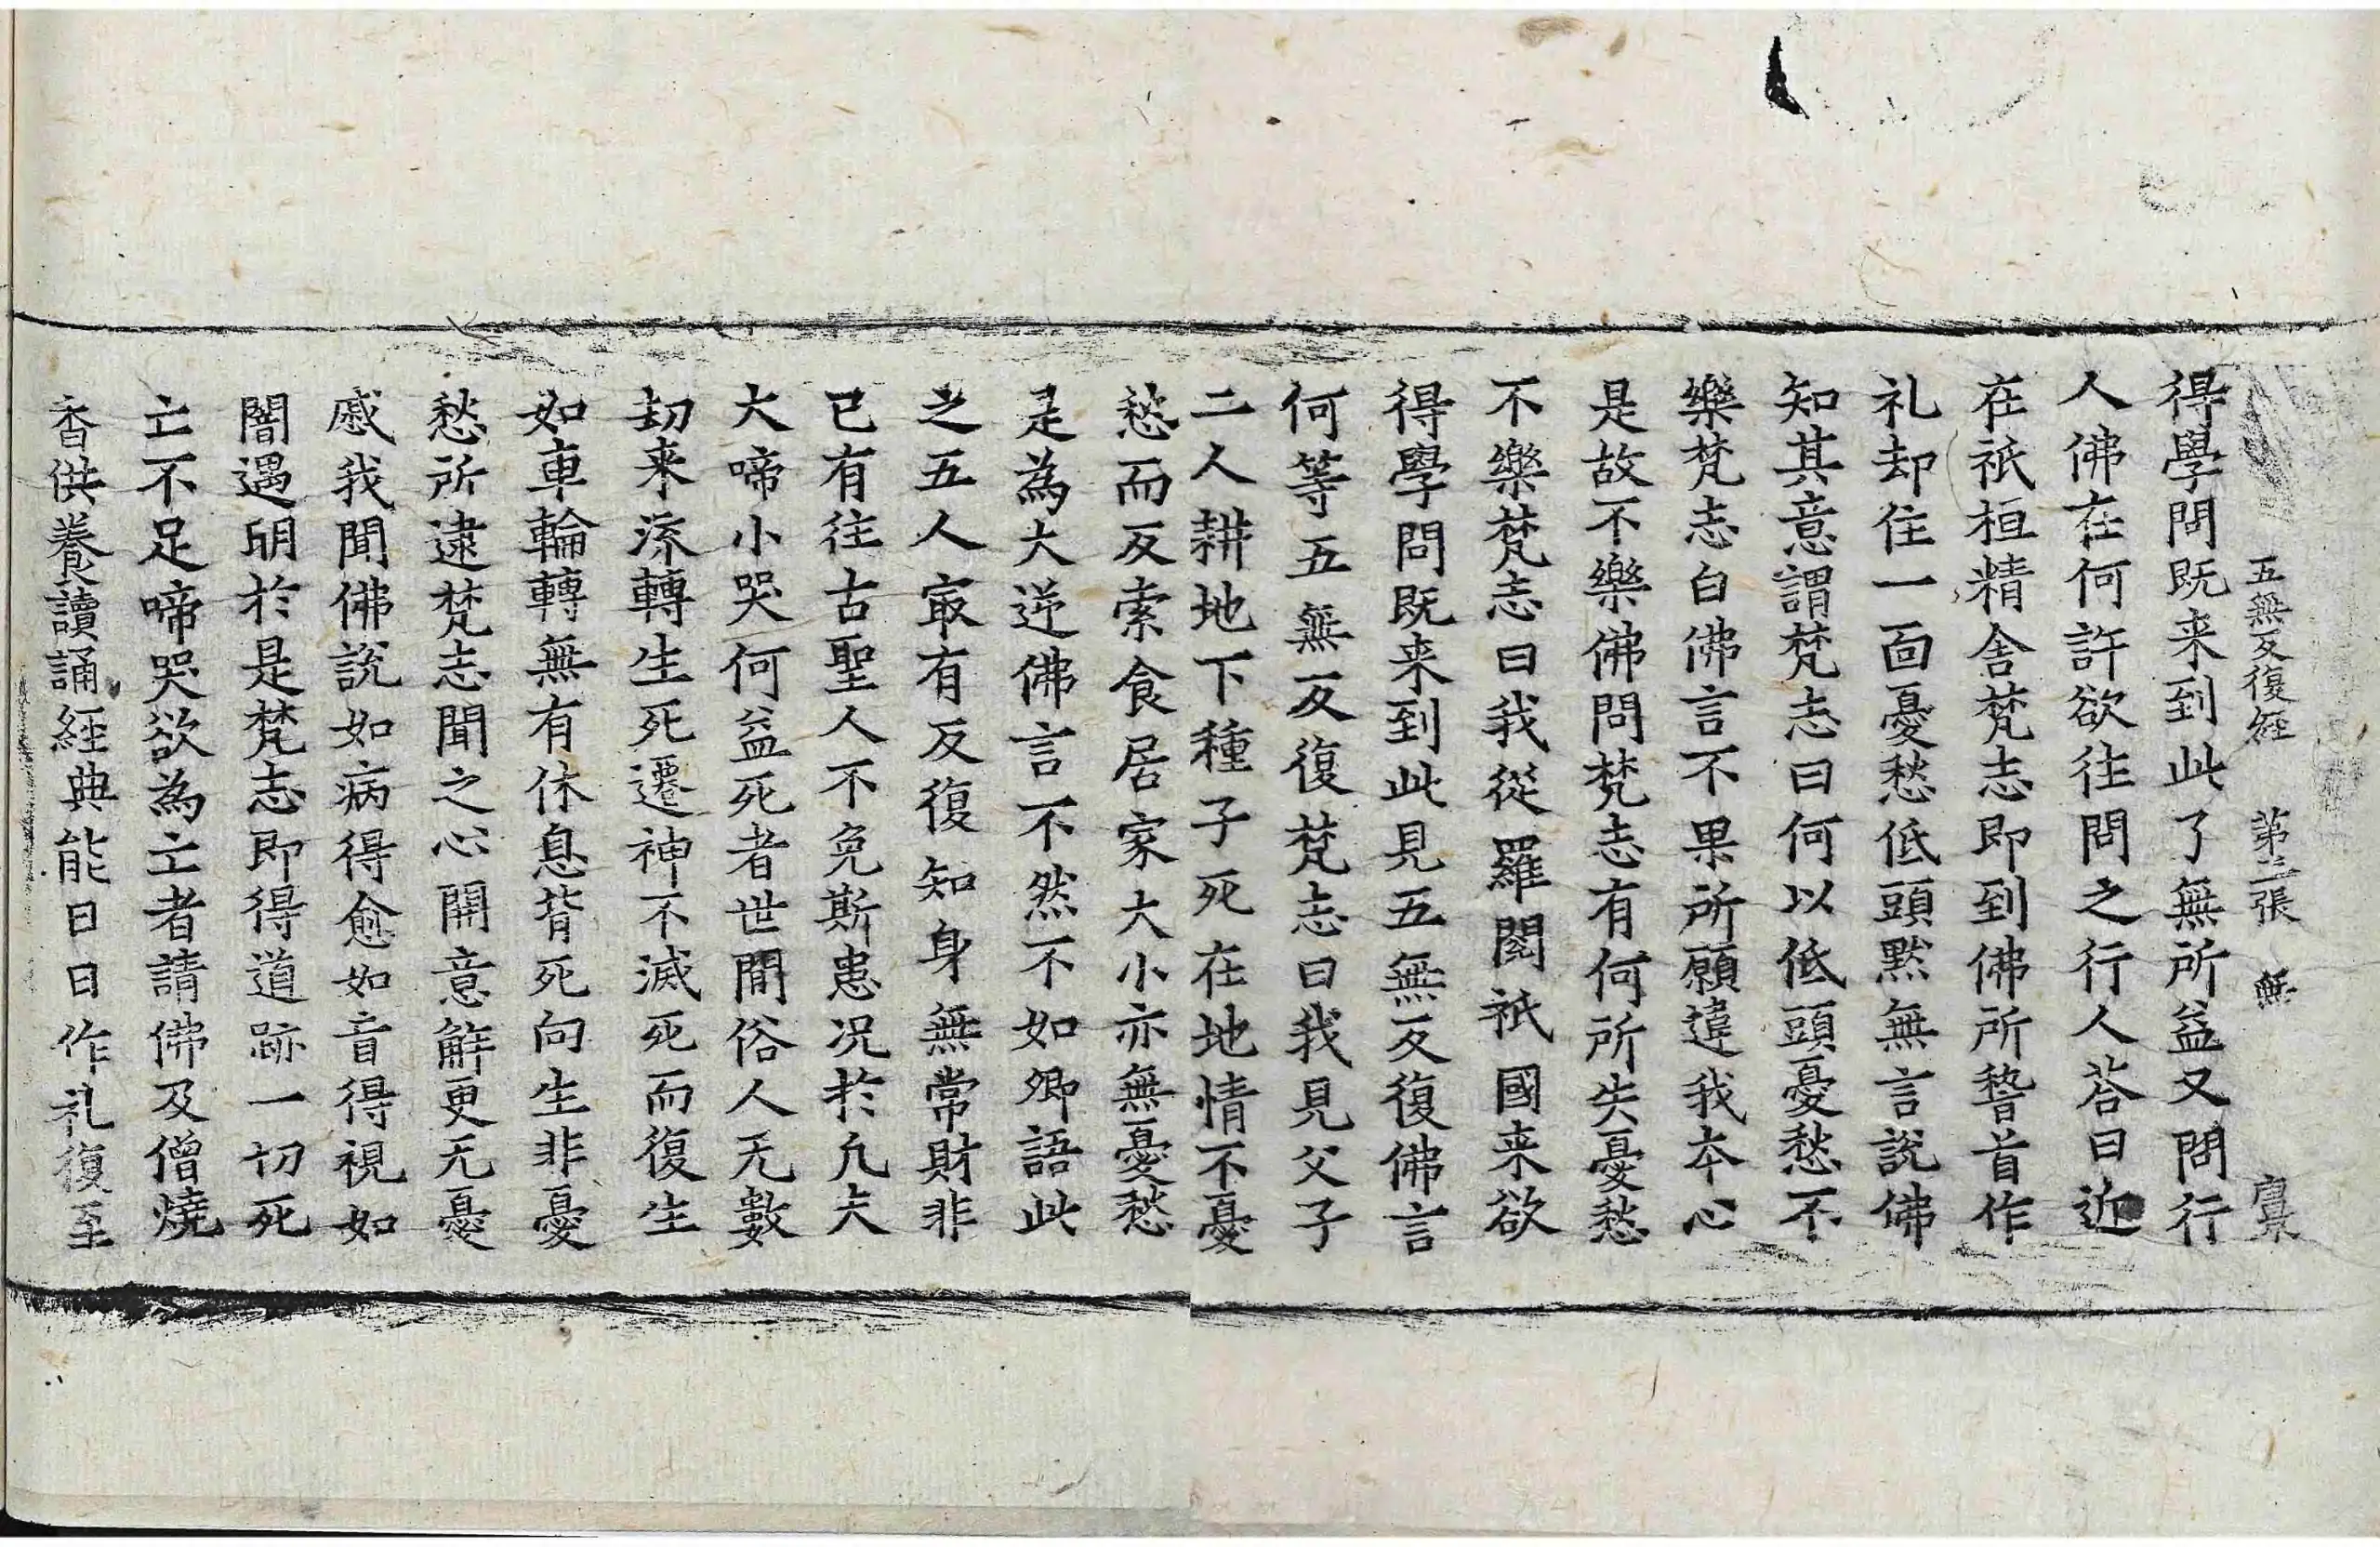 五無反復經　第二張　無
得學問既来到此了無所益又問行
人佛在何許欲往問之行人荅曰近
在祇桓精舍梵志即到佛所䭫首作
礼却住一面憂愁低頭默無言說佛
知其意謂梵志曰何以低頭憂愁不
樂梵志白佛言不果所願違我本心
是故不樂佛問梵志有何所失憂愁
不樂梵志曰我從羅閱祇國来欲
得學問既来到此見五無反復佛言
何等五無反復梵志曰我見父子
二人耕地下種子死在地情不憂
愁而反索食居家大小亦無憂愁
是為大逆佛言不然不如卿語此
之五人㝡有反復知身無常財非
已有往古聖人不免斯患況於凢夫
大啼小哭何益死者世間俗人无數
劫来流轉生死遷神不滅死而復生
如車輪轉無有休息背死向生非憂
愁所逮梵志聞之心開意解更无憂
慼我聞佛說如病得愈如盲得視如
闇遇明於是梵志即得道跡一切死
亡不足啼哭欲為亡者請佛及僧燒
香供養讀誦經典能日日作礼復至